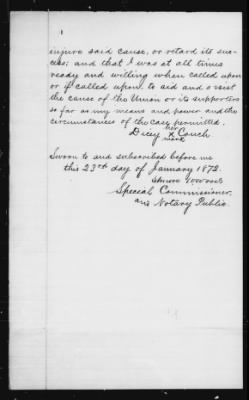 injure said cause, or retard its suc-
cess; and that I was at all times
ready and willing when called upon
or if called upon, to aid and assist
the cause of the Union or its supporters
so far as my means and power and the
circumstances of the case permitted.
her
Dicey x Couch
mark
Sworn to and subscribed before me
this 23rd day of January 1872.
Special Commissioner.
and Notary Public.